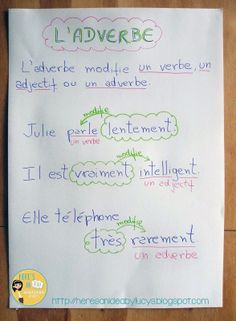 L'ADVERBE
L'adverbe modifie un verbe, un
adjectif ou un adverbe.
modifie
Julie parle lentement.
un verbe
modifie
Il est vraiment intelligent.
un adjectif
Elle téléphone
modifie
très rarement
un adverbe
http://heresanideabylucys.blogspot.com